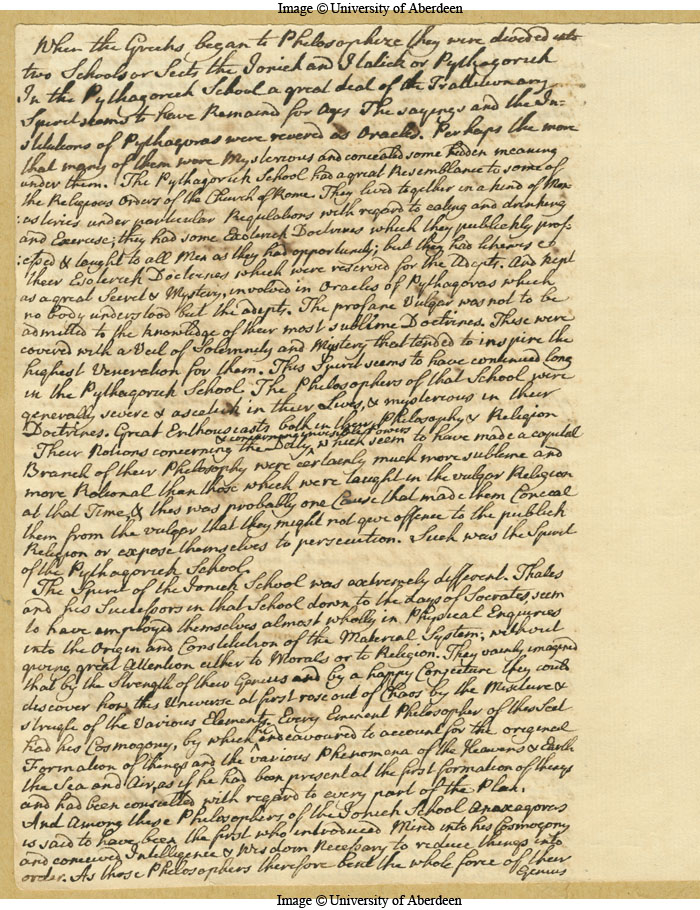 Image © University of Aberdeen
When the Greeks began to Philosophize they were divided into
two Schools or Sects the Ionick and Italick or Pythagorick
In the Pythagorick School a great deal of the Traditionary
Spirit seems to have Remained for Ages The sayings and the In=
stitutions of Pythagoras were revered as Oracles. Perhaps the more
that many of them were Mysterious and concealed some hidden meaning
under them. The Pythagorick School had a great Resemblance to some of
the Religious Orders of the Church of Rome. They lived together in a kind of Mon
:asteries under particular Regulations with regard to eating and drinking
and Exercise; they had some Exoterick Doctrines which they publickly prof
:essed & taught to all Men as they had opportunity; but they had
their Esoterick Doctrines which were reserved for the Adepts. And kept
as a great Secret & Mystery, involved in Oracles of Pythagoras which
no body understood but the adept. The profane Vulgar was not to be
admitted to the knowledge of their most sublime Doctrines. These were
covered with a Veil of Solemnity and Mystery that tended to inspire the
highest Veneration for them. This Spirit seems to have continued long
in the Pythagorick School. The Philosophers of that School were
generally severe & ascetick in their Lives, & mysterious in their
Doctrines. Great Enthousiasts both in their Philosophy & Religion
& concerning invisible powers
Their Notions concerning the Deity which seem to have made a capital
Branch of their Philosophy were certainly much more sublime and
more Rational than those which were taught in the vulgar Religion
at that Time & this was probably one Cause that made them Conceal
them from the vulgar that they might not give offence to the publick
Religion or expose themselves to persecution. Such was the Spirit
of the Pythagorick School.
The Spirit of the Ionick School was extremely different. Thales
and his Successors in that School down to the days of Socrates seem
to have employed themselves almost wholly in Physical Enquiries
into the Origin and Constitution of the Material System; without
giving great Attention either to Morals or to Religion. They vainly imagined
that by the Strength of their Genius and by a happy Conjecture they could
discover how this Universe at first rose out of Chaos by the Mixture &
strugle of the Various Elements. Every Eminent Philosopher of this Sect
had his Cosmogony, by which he endeavoured to account for the original
Formation of things and the various Phenomena of the Heavens & Earth
the Sea and Air, as if he had been present at the first formation of things
and had been consulted with regard to every part of the Plan.
And Among these Philosophers of the Ionick School Anaxagoras
is said to have been the first who introduced Mind into his Cosmogony
and conceived Intelligence & Wisdom Necessary to reduce things into
order. As those Philosophers therefore bent the whole force of their
Genius
Image © University of Aberdeen